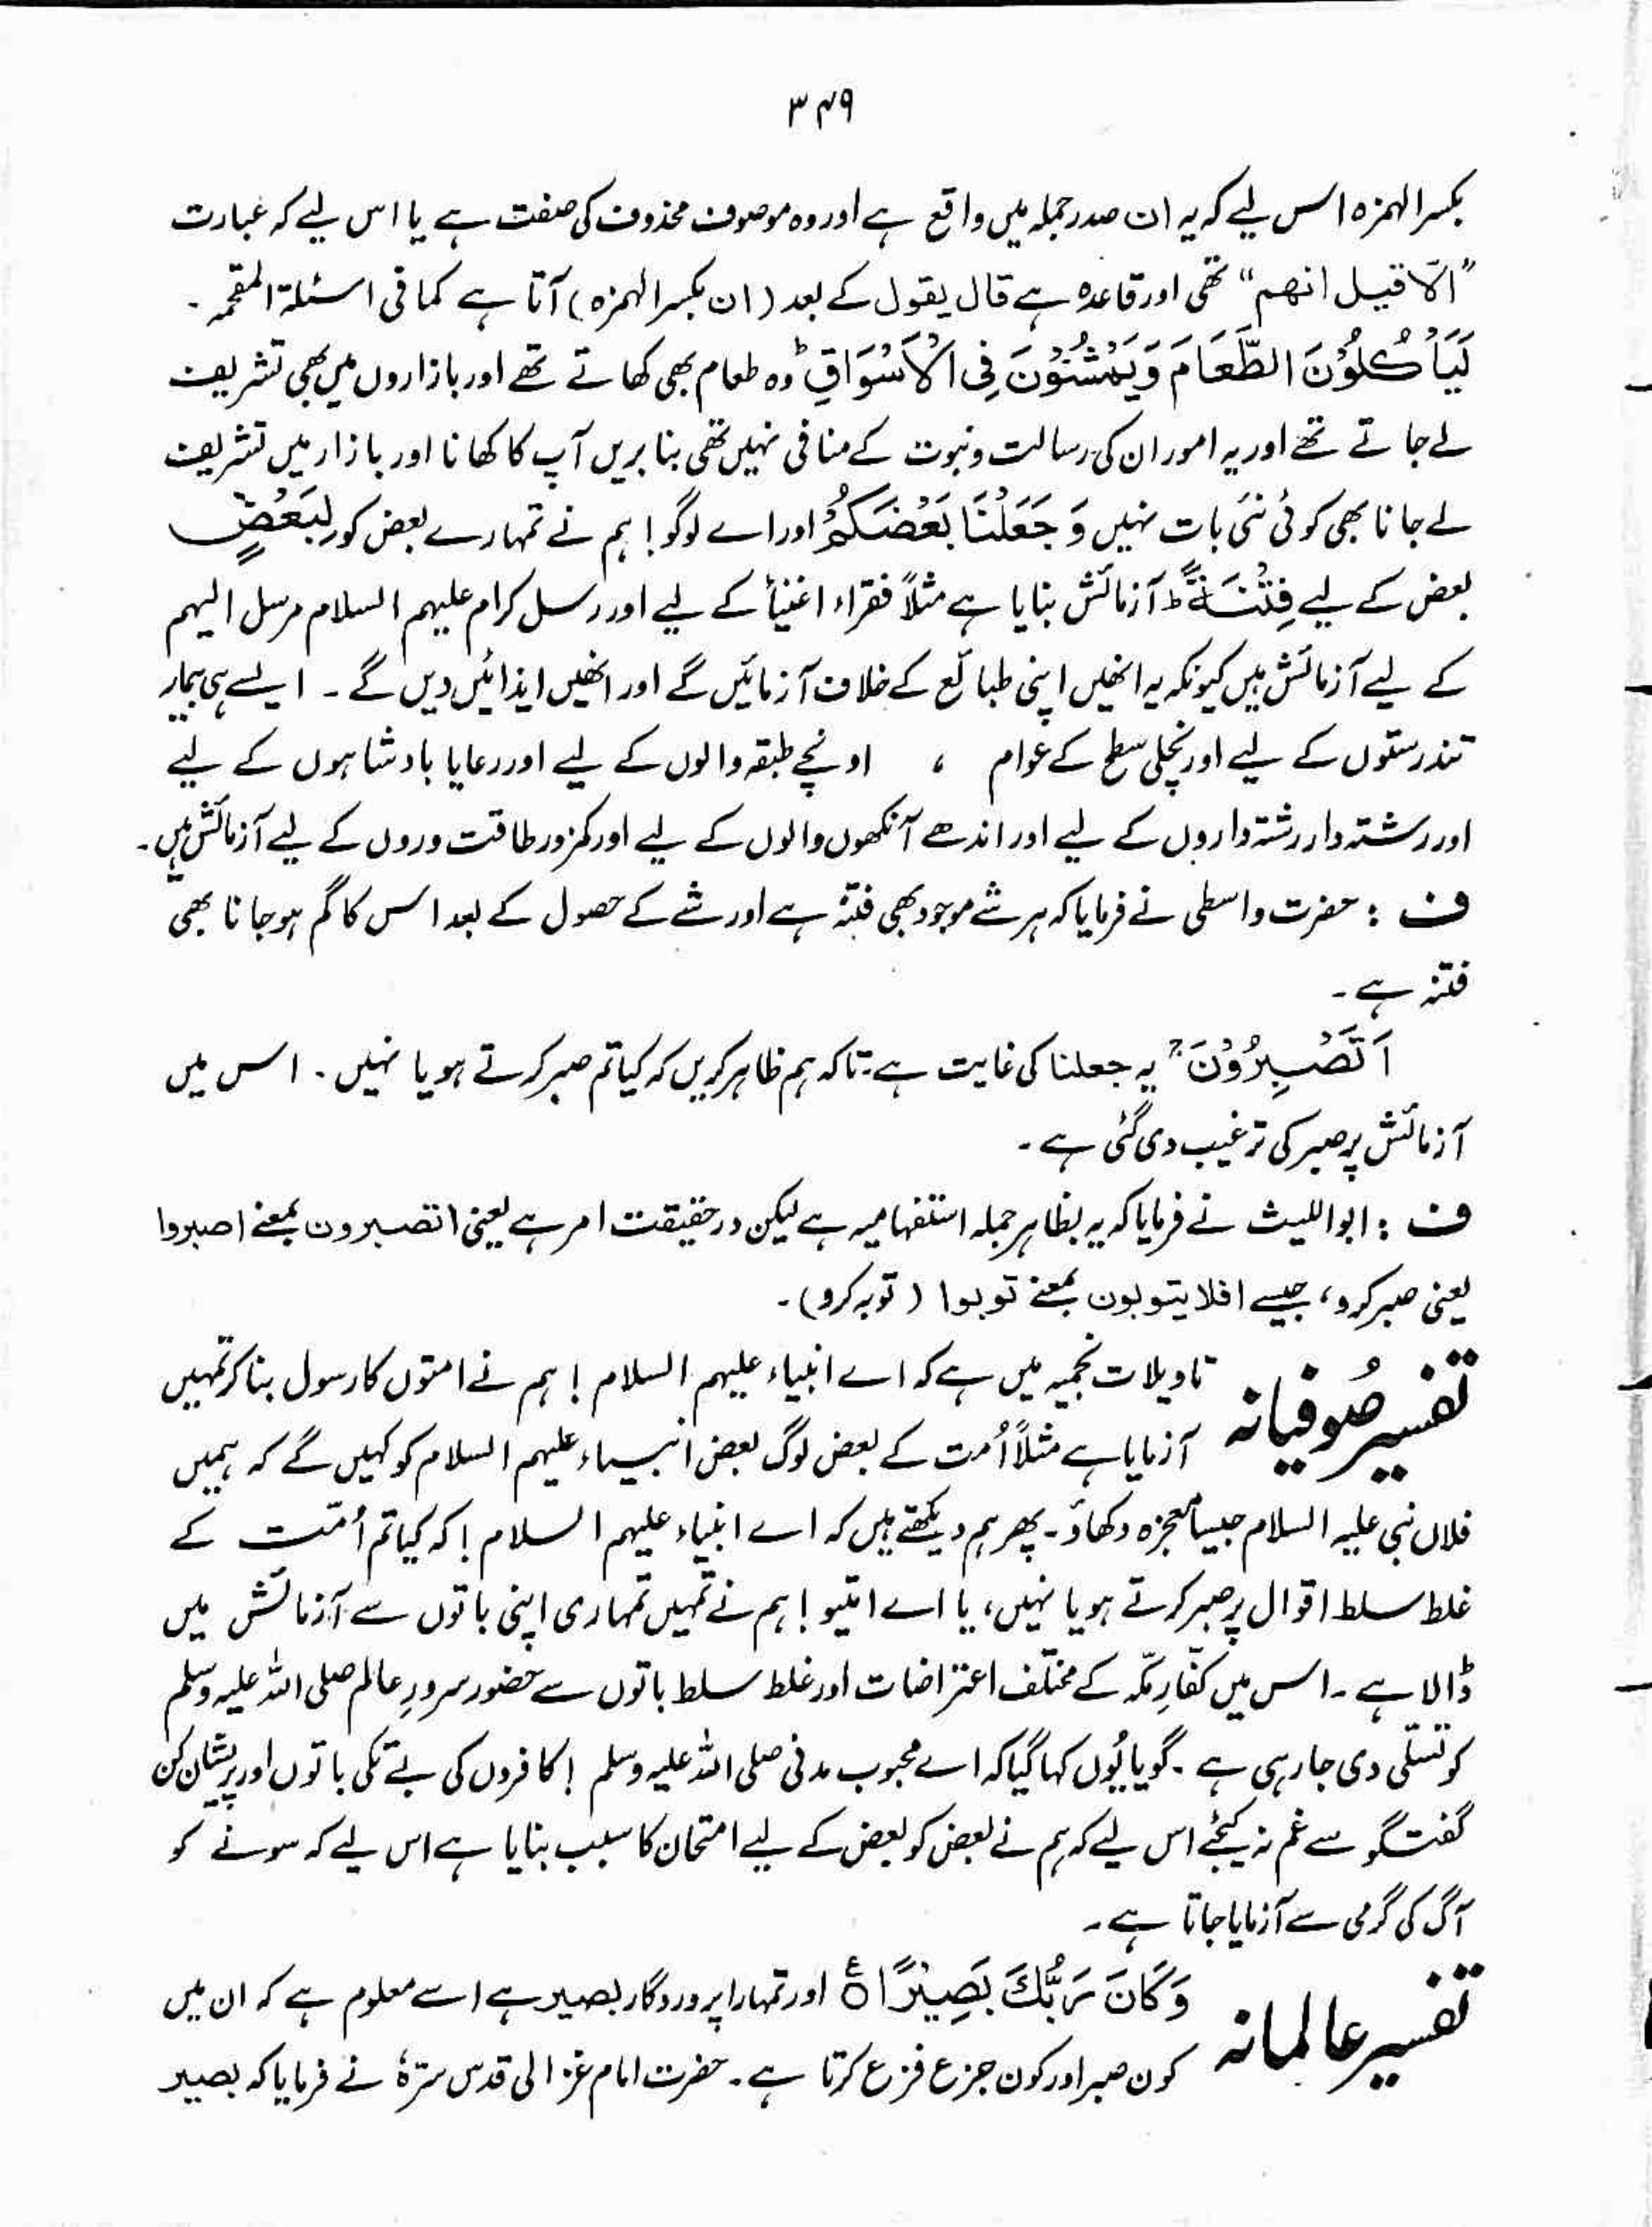 ۳۴۹
بکسر الہمزہ اس لیے کہ یہ ان صدر جملہ میں واقع ہے اور وہ موصوف محذوف کی صفت ہے یا اس لیے کہ عبارت
”الّا قیل انھم“ تھی اور قاعدہ ہے قال یقول کے بعد (ان بکسر الہمزہ) آتا ہے کما فی اسئلۃ المقحمہ ۔
لَیَاْکُلُوْنَ الطَّعَامَ وَیَمْشُوْنَ فِی الْاَسْوَاقِ ؕ وہ طعام بھی کھاتے تھے اور بازاروں میں بھی تشریف
لے جاتے تھے اور یہ امور ان کی رسالت و نبوت کے منافی نہیں تھی بنا بریں آپ کا کھانا اور بازار میں تشریف
لے جانا بھی کوئی نئی بات نہیں وَجَعَلْنَا بَعْضَکُمْ اور اے لوگو ! ہم نے تمہارے بعض کو لِبَعْضٍ
بعض کے لیے فِتْنَۃً ؕ آزمائش بنایا ہے مثلاً فقراء اغنیأ کے لیے اور رسل کرام علیہم السلام مرسل الیہم
کے لیے آزمائش ہیں کیونکہ یہ انھیں اپنی طبائع کے خلاف آزمائیں گے اور انھیں ایذائیں دیں گے ۔ ایسے ہی بیمار
تندرستوں کے لیے اور نچلی سطح کے عوام ، اونچے طبقہ والوں کے لیے اور رعایا بادشاہوں کے لیے
اور رشتہ دار رشتہ داروں کے لیے اور اندھے آنکھوں والوں کے لیے اور کمزور طاقت وروں کے لیے آزمائش ہیں ۔
ف : حضرت واسطی نے فرمایا کہ ہر شے موجود بھی فتنہ ہے اور شے کے حصول کے بعد اس کا گم ہو جانا بھی
فتنہ ہے ۔
اَتَصْبِرُوْنَ ۚ یہ جعلنا کی غایت ہے تاکہ ہم ظاہر کریں کہ کیا تم صبر کرتے ہو یا نہیں ۔ اس میں
آزمائش پر صبر کی ترغیب دی گئی ہے ۔
ف : ابواللیث نے فرمایا کہ یہ بظاہر جملہ استفہامیہ ہے لیکن درحقیقت امر ہے یعنی اتصبرون بمعنے اصبروا
یعنی صبر کرو ، جیسے افلا یتوبون بمعنے توبوا (توبہ کرو) ۔
تفسیر صُوفیانہ تاویلات نجمیہ میں ہے کہ اے انبیاء علیہم السلام ! ہم نے امتوں کا رسول بنا کر تمہیں
آزمایا ہے مثلاً اُمت کے بعض لوگ بعض انبیاء علیہم السلام کو کہیں گے کہ ہمیں
فلاں نبی علیہ السلام جیسا معجزہ دکھاؤ ۔ پھر ہم دیکھتے ہیں کہ اے انبیاء علیہم السلام ! کہ کیا تم اُمّت کے
غلط سلط اقوال پر صبر کرتے ہو یا نہیں ، یا اے امتیو ! ہم نے تمہیں تمہاری اپنی باتوں سے آزمائش میں
ڈالا ہے ۔ اس میں کفّارِ مکّہ کے مختلف اعتراضات اور غلط سلط باتوں سے حضور سرورِ عالم صلی اللہ علیہ وسلم
کو تسلّی دی جارہی ہے ۔ گویا یُوں کہا گیا کہ اے محبوب مدنی صلی اللہ علیہ وسلم ! کافروں کی بے تکی باتوں اور پریشان کن
گفتگو سے غم نہ کیجئے اس لیے کہ ہم نے بعض کو بعض کے لیے امتحان کا سبب بنایا ہے اس لیے کہ سونے کو
آگ کی گرمی سے آزمایا جاتا ہے ۔
تفسیر عالمانہ وَکَانَ رَبُّکَ بَصِیْرًا ۠ اور تمہارا پروردگار بصیر ہے اسے معلوم ہے کہ ان میں
کون صبر اور کون جزع فزع کرتا ہے ۔ حضرت امام غزالی قدس سّرہٗ نے فرمایا کہ بصیر